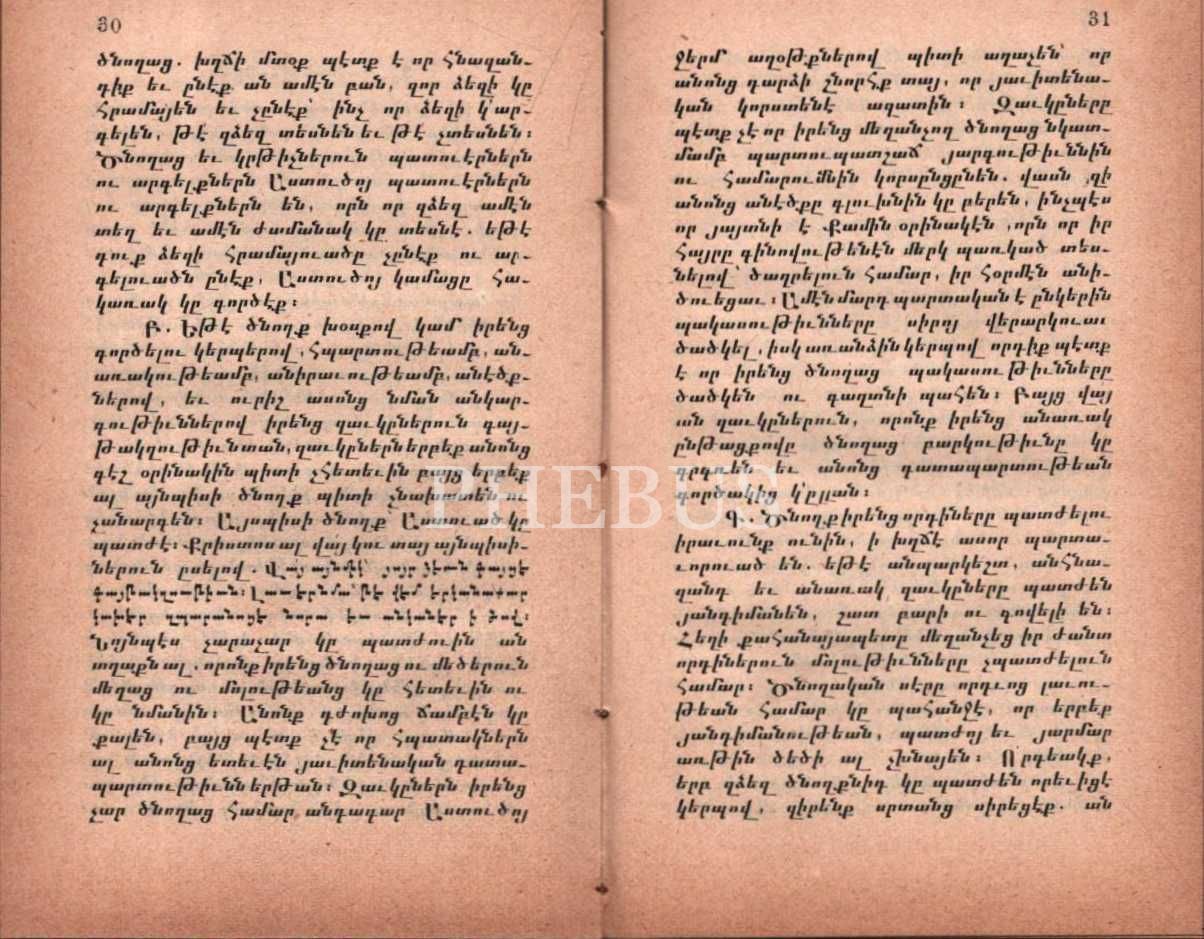 30
ծնողաց. խղճի մտօք պէտք է որ հնազան-
դիք եւ ընէք ան ամէն բան, զոր ձեզի կը
հրամայեն եւ չընէք՝ ինչ որ ձեզի կ՚ար-
գելեն, թէ զձեզ տեսնեն եւ թէ չտեսնեն։
Ծնողաց եւ կրթիչներուն պատուէրներն
ու արգելքներն Աստուծոյ պատուէրներն
ու արգելքներն են, որն որ զձեզ ամէն
տեղ եւ ամէն ժամանակ կը տեսնէ. եթէ
դուք ձեզի հրամայուածը չընէք ու ար-
գելուածն ընէք, Աստուծոյ կամացը հա-
կառակ կը գործէք։
Բ. Եթէ ծնողք խօսքով կամ իրենց
գործելու կերպերով, հպարտութեամբ, ան-
առակութեամբ, անիրաւութեամբ, անէծք-
ներով, եւ ուրիշ ասոնց նման անկար-
գութիւններով իրենց զաւկըներուն գայ-
թակղութիւն տան, զաւկըներն երբեք անոնց
գէշ օրինակին պիտի չհետեւին բայց երբեք
ալ այնպիսի ծնողք պիտի չնախատեն ու
չանարգեն։ Այսպիսի ծնողք՝ Աստուած կը
պատժէ։ Քրիստոս ալ վայ կու տայ այնպիսի-
ներուն ըսելով.
Նոյնպէս չարաչար կը պատժուին ան
տղաքն ալ, որոնք իրենց ծնողաց ու մեծերուն
մեղաց ու մոլութեանց կը հետեւին ու
կը նմանին։ Անոնք դժոխոց ճամբէն կը
քալեն, բայց պէտք չէ որ հպատակներն
ալ անոնց ետեւէն յաւիտենական դատա-
պարտութիւնն երթան։ Զաւկըներն իրենց
չար ծնողաց համար անդադար Աստուծոյ
31
ջերմ աղօթքներով պիտի աղաչեն՝ որ
անոնց դարձի շնորհք տայ, որ յաւիտենա-
կան կորստենէ ազատին։ Զաւկըները
պէտք չէ որ իրենց մեղանչող ծնողաց նկատ-
մամբ պարտուպատշաճ յարգութիւննին
ու համարումնին կորսընցընեն. վասն զի
անոնց անէծքը գլուխնին կը բերեն, ինչպէս
որ յայտնի է Քամին օրինակէն, որն որ իր
հայրը գինովութենէն մերկ պառկած տես-
նելով՝ ծաղրելուն համար, իր հօրմէն անի-
ծուեցաւ։ Ամէն մարդ պարտական է ընկերին
պակասութիւնները սիրոյ վերարկուաւ
ծածկել, իսկ առանձին կերպով որդիք պէտք
է որ իրենց ծնողաց պակասութիւնները
ծածկեն ու գաղտնի պահեն։ Բայց վայ
ան զաւկըներուն, որոնք իրենց անառակ
ընթացքովը ծնողաց բարկութիւնը կը
գրգռեն եւ անոնց դատապարտութեան
գործակից կ՚ըլլան։
Գ. Ծնողք իրենց որդիները պատժելու
իրաւունք ունին, ի խղճէ ասոր պարտա-
ւորուած են. եթէ անպարկեշտ, անհնա-
զանդ եւ անառակ զաւկըները պատժեն
յանդիմանեն, շատ բարի ու գովելի են։
Հեղի քահանայապետը մեղանչեց իր ժանտ
որդիներուն մոլութիւնները չպատժելուն
համար։ Ծնողական սէրը որդւոց լաւու-
թեան համար կը պահանջէ, որ երբեք
յանդիմանութեան, պատժոյ եւ յարմար
առթին ծեծի ալ չխնայեն։ Որդեակք,
երբ զձեզ ծնողքնիդ կը պատժեն որեւիցէ
կերպով, զիրենք սրտանց սիրեցէք. ան
PHEBUS